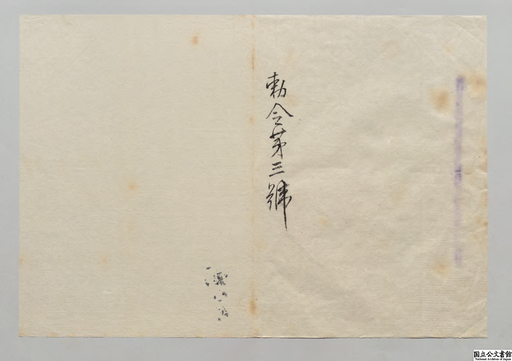 勅令第三號
国立公文書館
National Archives of Japan